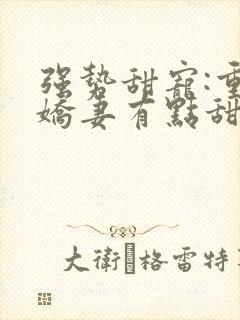 强势甜寵:重
嬌妻有點甜
大衛·格雷特